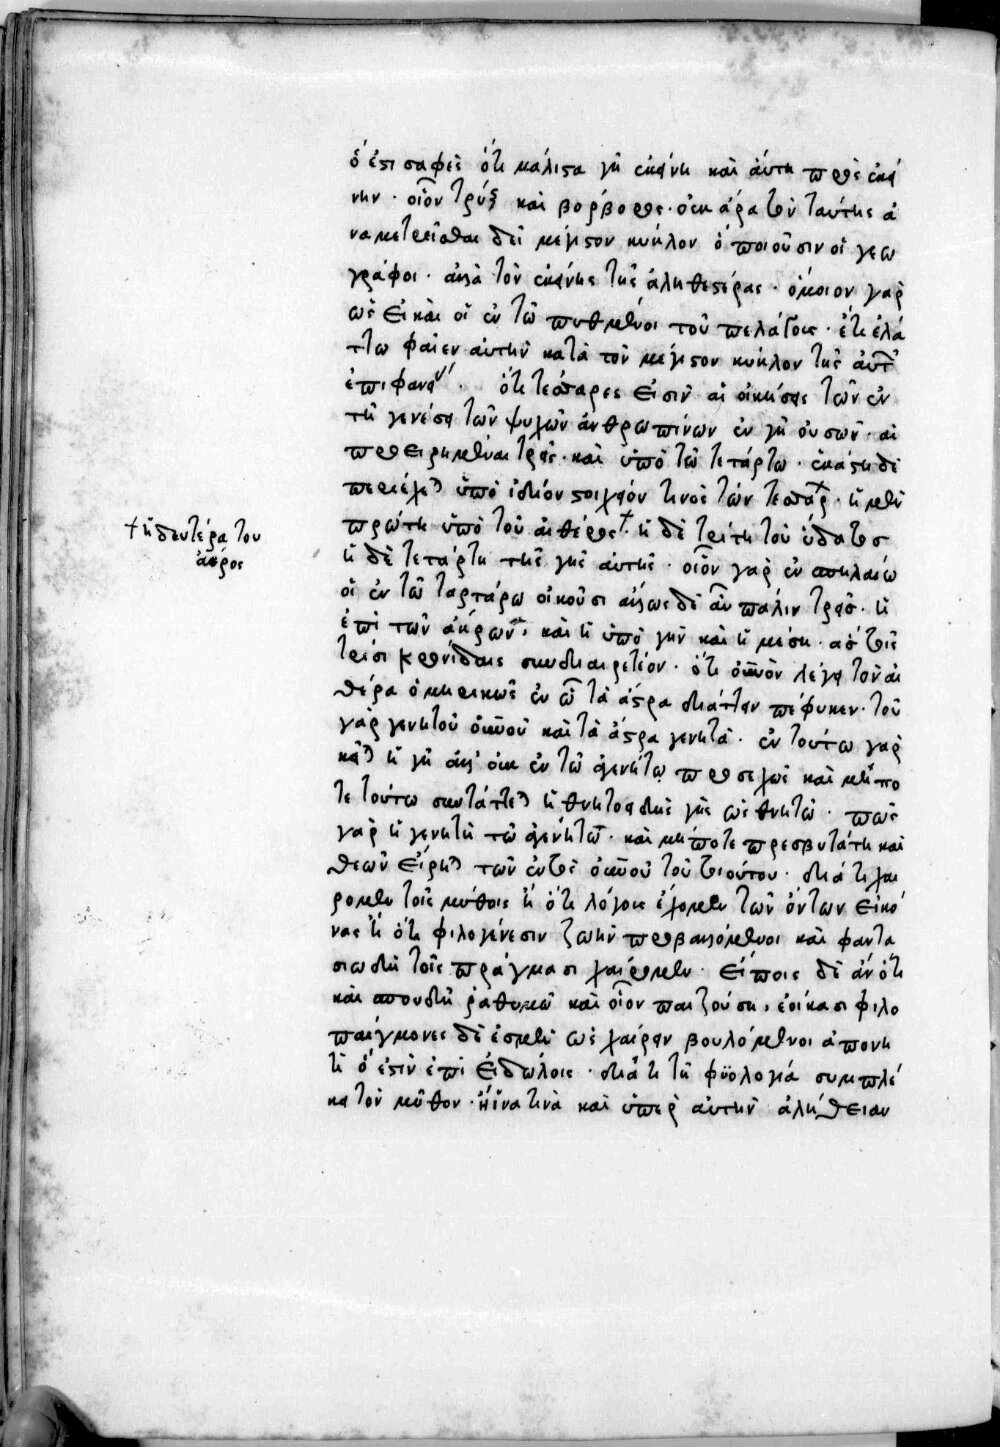 ὅ ἐστι σαφὲς ὅτι μάλιστα γῆ ἐκείνη καὶ αὕτη πρὸς ἐκεί
νην · οἷον τρὺξ καὶ βόρβορος · οὐκ ἄρα τὸν ταύτης ἀ
ναμετρεῖσθαι δεῖ μέγιστον κύκλον ὃ ποιοῦσιν οἱ γεω
γράφοι · ἀλλὰ τὸν ἐκείνης τῆς ἀληθεστέρας · ὅμοιον γὰρ
ὡς εἰ καὶ οἱ ἐν τῷ πυθμένι τοῦ πελάγους · ἔτι ἐλά
ττω φαῖεν αὐτὴν κατὰ τὸν μέγιστον κύκλον τῆς αὐτῆς
ἐπιφανεί · ὅτι τέσσαρες εἰσὶν αἱ οἰκήσεις τῶν ἐν
τῇ γενέσει τῶν ψυχῶν ἀνθρωπίνων ἐν γῇ οὐσῶν · αἱ
προειρημέναι τρεῖς · καὶ ὑπὸ τῷ τετάρτῳ · ἑκάστη δὲ
περιέχεται ὑπὸ ἰδίου στοιχείου τινὸς τῶν τεσσάρων · ἡ μὲν
πρώτη ὑπὸ τοῦ αἰθέρος + ἡ δὲ τρίτη τοῦ ὕδατος
+ ἡ δευτέρα τοῦ
ἀέρος
ἡ δὲ τετάρτη τῆς γῆς αὐτῆς · οἷον γὰρ ἐν σπηλαίῳ
οἱ ἐν τῷ ταρτάρῳ οἰκοῦσι ἄλλως δὲ ἂν πάλιν τρεῖς · ἡ
ἐπὶ τῶν ἄκρων, καὶ ἡ ὑπὸ γῆν καὶ ἡ μέση · ἃς τοῖς
τρισὶ κρονίδαις συνδιαιρετέον · ὅτι οὐρανὸν λέγει τὸν αἰ
θέρα ὁμηρικῶς ἐν ᾧ τὰ ἄστρα διάττειν πέφυκεν · τοῦ
γὰρ γενητοῦ οὐρανοῦ καὶ τὰ ἄστρα γενητά · ἐν τούτῳ γὰρ
κεῖται ἡ γῆ ἀλλ' οὐκ ἐν τῷ ἀγενήτῳ προσεχῶς καὶ μήπο
τε τούτῳ συντάττεται ἡ θνητοειδὴς γῆς ὡς θνητῷ · πῶς
γὰρ ἡ γενητὴ τῷ ἀγενήτῳ · καὶ μήποτε πρεσβυτάτη καὶ
θεῶν εἴρηται τῶν ἐντὸς οὐρανοῦ τοῦ τοιούτου · διὰ τί χαί
ρομεν τοῖς μύθοις ἢ ὅτι λόγοις ἔχομεν τῶν ὄντων εἰκό
νας ἢ ὅτι φιλογένεσιν ζωὴν προβαλλόμενοι καὶ φαντα
σιώδη τοῖς πράγμασι χαίρομεν · εἴποις δὲ ἂν ὅτι
καὶ σπουδὴ ῥαθυμῶ καὶ οἷον παιζούσῃ, ἐοίκασι φιλο
παίγμονες δέ ἐσμεν ὡς χαίρειν βουλόμενοι ἀπονη
τὶ ὅ ἐστιν ἐπὶ εἰδώλοις · διὰ τί τῇ φυσιολογίᾳ συμπλέ
κει τὸν μῦθον · ἢ ἵνα τινὰ καὶ ὑπὲρ αὐτὴν ἀλήθειαν